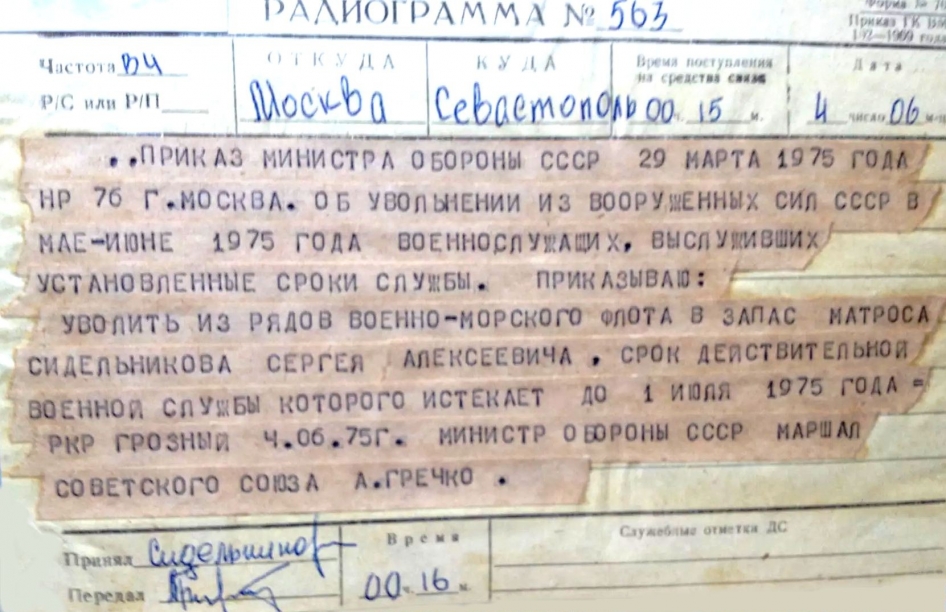 РАДИОГРАММА № 563
Форма №
Приказ ГК
Частота ВЧ
ОТКУДА
КУДА
Время поступления
на средства связи
Дата
Р/С или Р/П
Москва
Севастополь
00 ч. 15 м.
4 число 06
..ПРИКАЗ МИНИСТРА ОБОРОНЫ СССР 29 МАРТА 1975 ГОДА
НР 76 Г.МОСКВА. ОБ УВОЛЬНЕНИИ ИЗ ВООРУЖЕННЫХ СИЛ СССР В
МАЕ-ИЮНЕ 1975 ГОДА ВОЕННОСЛУЖАЩИХ, ВЫСЛУЖИВШИХ
УСТАНОВЛЕННЫЕ СРОКИ СЛУЖБЫ. ПРИКАЗЫВАЮ:
УВОЛИТЬ ИЗ РЯДОВ ВОЕННО-МОРСКОГО ФЛОТА В ЗАПАС МАТРОСА
СИДЕЛЬНИКОВА СЕРГЕЯ АЛЕКСЕЕВИЧА . СРОК ДЕЙСТВИТЕЛЬНОЙ
ВОЕННОЙ СЛУЖБЫ КОТОРОГО ИСТЕКАЕТ ДО 1 ИЮЛЯ 1975 ГОДА =
РКР ГРОЗНЫЙ 4.06.75Г. МИНИСТР ОБОРОНЫ СССР МАРШАЛ
СОВЕТСКОГО СОЮЗА А.ГРЕЧКО .
Принял Сидельников
Время
Служебные отметки ДС
Передал
00 ч. 16 м.